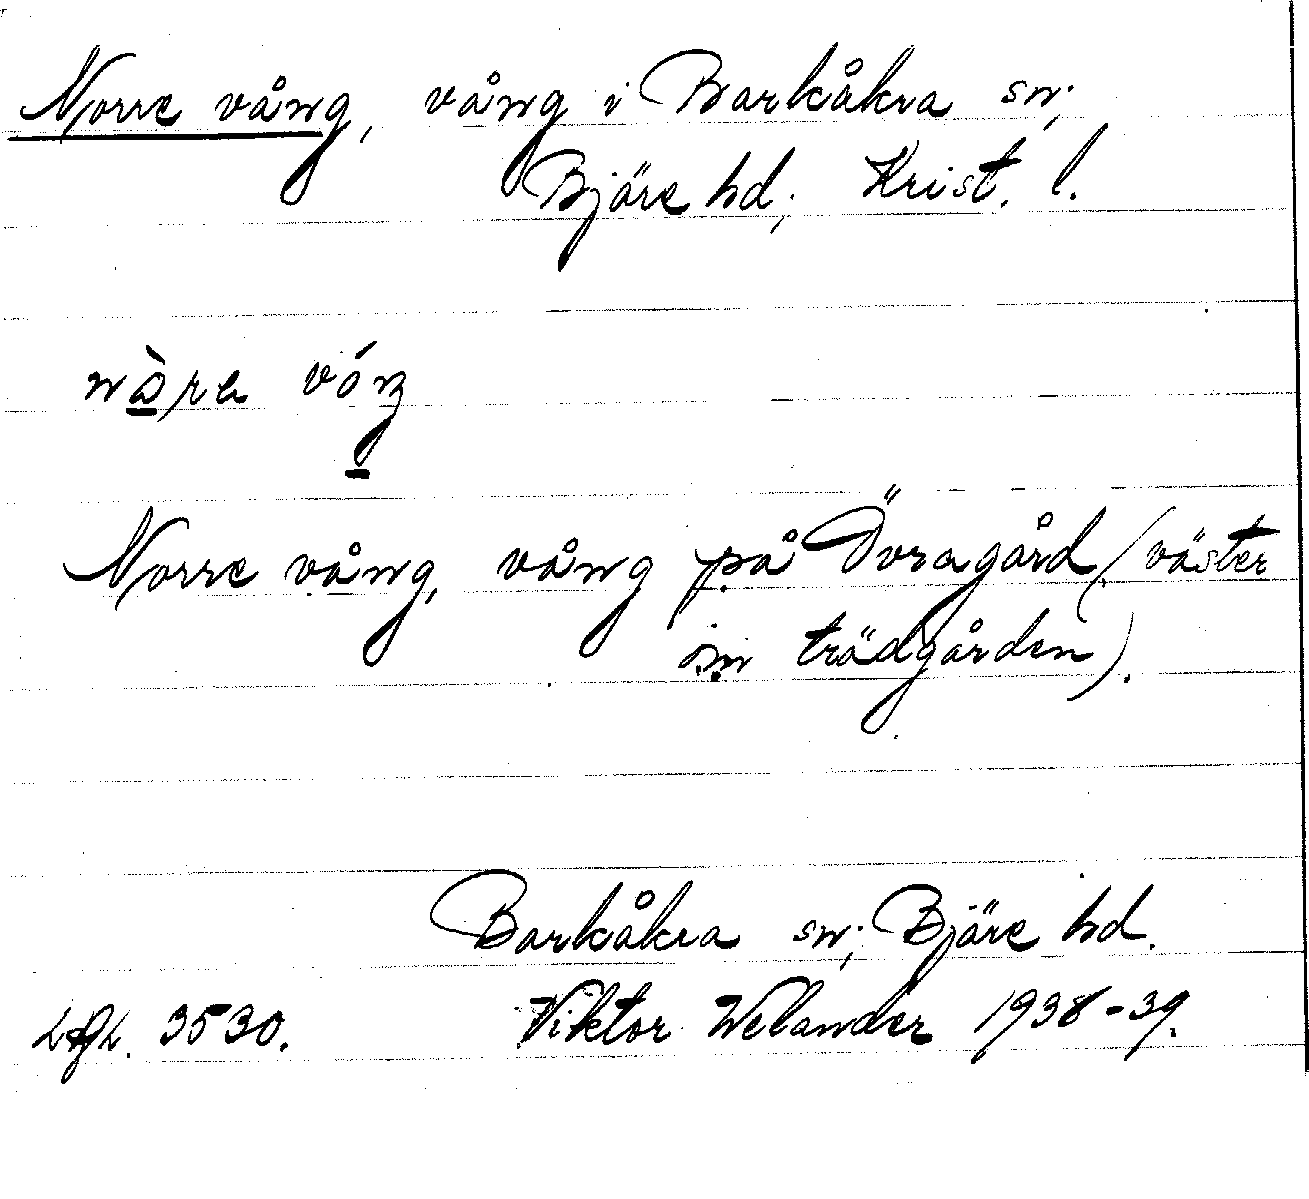 Norre vång, vång i Barkåkra sn;
Bjäre hd; Krist. l.
Norre vång, vång på Övragård (väster
om trädgården).
Barkåkra sn; Bjäre hd.
3530. Viktor Welander 1938-39.